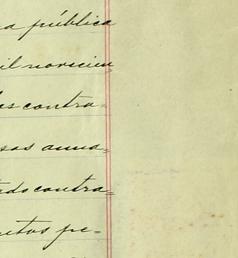 a pública
il novecien
les contra-
sas anua-
tedo contra-
utos pe-